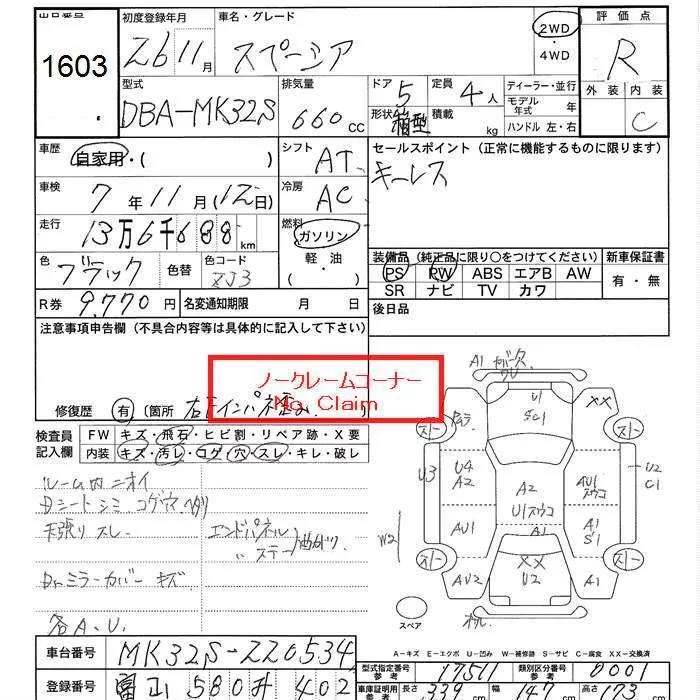 出品番号 初度登録年月 車名・グレード 2WD・4WD 評価点
1603 26 11月 スペーシア R
外装 内装
C
型式 排気量 ドア 定員 ディーラー・並行
DBA-MK32S 660cc 5 4人 モデル年式 年
形状 箱型 積載 kg ハンドル 左・右
車歴 シフト セールスポイント (正常に機能するものに限ります)
自家用・( ) AT キーレス
車検 冷房
7年11月(12日) AC
走行 燃料
13万6千688km ガソリン・軽・油
装備品 (純正品に限り○をつけてください) 新車保証書
色 ブラック 色替 色コード ZJ3
PS PW ABS エアB AW 有・無
SR ナビ TV カワ
R券 9,770円 名変通知期限 月 日 後日品
注意事項申告欄 (不具合内容等は具体的に記入して下さい)
ノークレームコーナー
No Claim
修復歴 有 〔箇所
検査員記入欄 FW キズ・飛石・ヒビ割・リペア跡・X要
内装 キズ・汚レ・コゲ・穴・スレ・キレ・破レ
ルーム内ニオイ
Dシートシミ コゲ穴 ヘタリ
天張リスレ エンドパネル
〃 ステー 曲がり
Drミラーカバー キズ
各A.U.
A1 カバー欠
U1
SC1
XX
U3 U4 A2 A2 AU1 U2 C1
U1
W2 AU1 A1 A1 S1
XX
AU2 U2 A1
スペア
A-キズ E-エクボ U-凹み W-補修跡 S-サビ C-腐食 XX-交換済
車台番号 MK32S-220534
型式指定番号 参考 17511 類別区分番号 参考 0001
登録番号 富山 580 402
車庫証明用 参考 長さ 339 幅 147 高さ 173